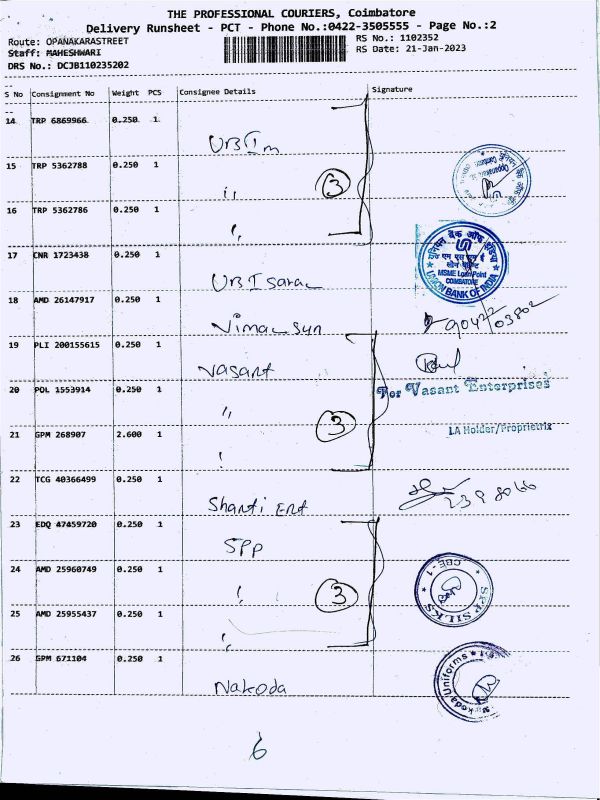 THE PROFESSIONAL COURIERS, Coimbatore
Delivery Runsheet - PCT - Phone No.:0422-3505555 - Page No.:2
Route: OPANAKARASTREET
RS No.: 1102352
Staff: MAHESHWARI
RS Date: 21-Jan-2023
DRS No.: DCJB110235202
S No Consignment No Weight PCS Consignee Details Signature
14 TRP 6869966 0.250 1
UBI m
15 TRP 5362788 0.250 1
" 3
16 TRP 5362786 0.250 1
"
17 CNR 1723438 0.250 1
यूनियन बैंक ऑफ इंडिया
MSME Loan Point
COIMBATORE
UNION BANK OF INDIA
UBI Saral
18 AMD 26147917 0.250 1
Vimal Sun
19 PLI 200155615 0.250 1
Vasant
20 POL 1553914 0.250 1
For Vasant Enterprises
" 3
21 GPM 268907 2.600 1
LA Holder/Proprietrix
"
22 TCG 40366499 0.250 1
Shanti Ent
23 EDQ 47459720 0.250 1
SPP
24 AMD 25960749 0.250 1
CBE - 1
SPP SILKS
" 3
25 AMD 25955437 0.250 1
"
26 GPM 671104 0.250 1
Nakoda Uniforms
Nakoda
6